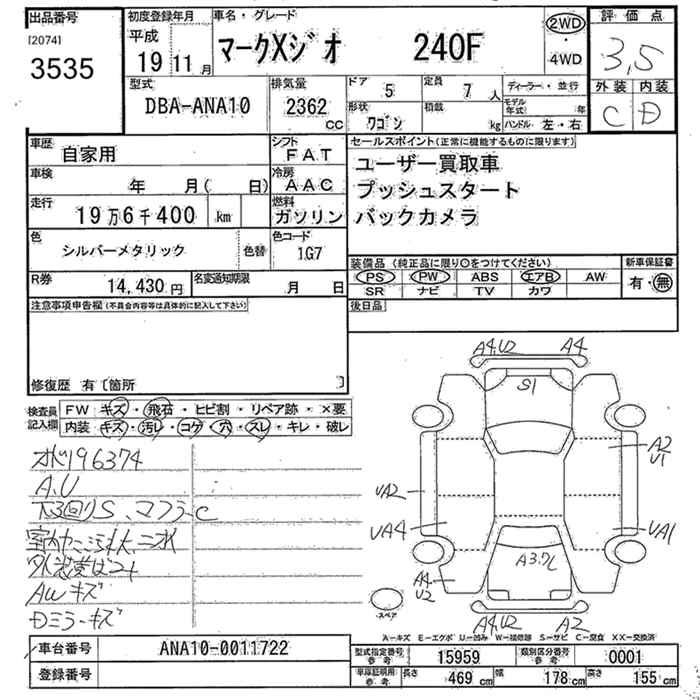 出品番号
[2074]
3535
初度登録年月
平成
19 11 月
車名・グレード
マークXジオ 240F
2WD
・
4WD
評価点
3,5
外装 内装
C D
型式
DBA-ANA10
排気量
2362
cc
ドア 5
定員 7 人
形状 ワゴン
積載 kg
ディーラー・並行
モデル年式 年
ハンドル 左・右
車歴 自家用
シフト FAT
車検 年 月( 日)
冷房 AAC
走行 19万6千400 km
燃料 ガソリン
色 シルバーメタリック 色替
色コード 1G7
R券 14,430 円
名変通知期限 月 日
セールスポイント(正常に機能するものに限ります)
ユーザー買取車
プッシュスタート
バックカメラ
装備品 (純正品に限り○をつけてください)
PS PW ABS エアB AW
SR ナビ TV カワ
新車保証書
有・無
後日品
注意事項申告欄(不具合内容等は具体的に記入して下さい)
修復歴 有〔箇所 〕
検査員記入欄
FW キズ・飛石・ヒビ割・リペア跡・×要
内装 キズ・汚レ・コゲ・穴・スレ・キレ・破レ
196374
A.U
下回りS、マフラーC
AWキズ
Dミラーキズ
A4,U2 A4
S1
A2
U1
UA2
UA4
UA1
A3.
A4
U2
スペア
A4,U2 A2
A-キズ E-エクボ U-凹み W-補修跡 S-サビ C-腐食 XX-交換済
車台番号 ANA10-0011722
登録番号
型式指定番号 参考 15959
類別区分番号 参考 0001
車庫証明用 参考 長さ 469 cm 幅 178 cm 高さ 155 cm